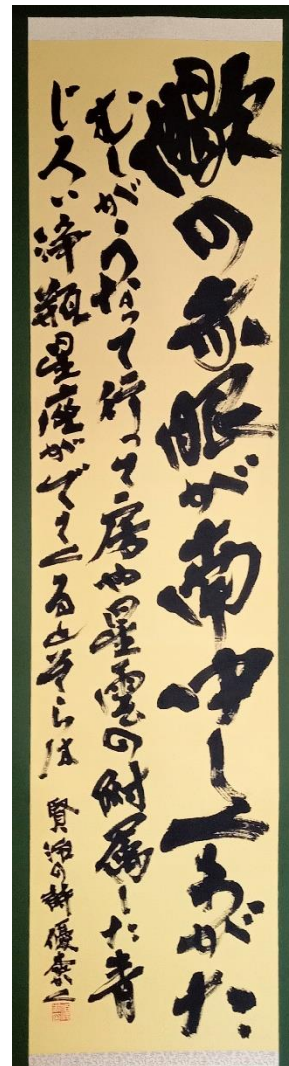 蠍の赤眼が南中しくわがた
むしがうなって行って房や星雲の附属した青
じろい浄瓶星座がでてくるとそらは
賢治の詩 優